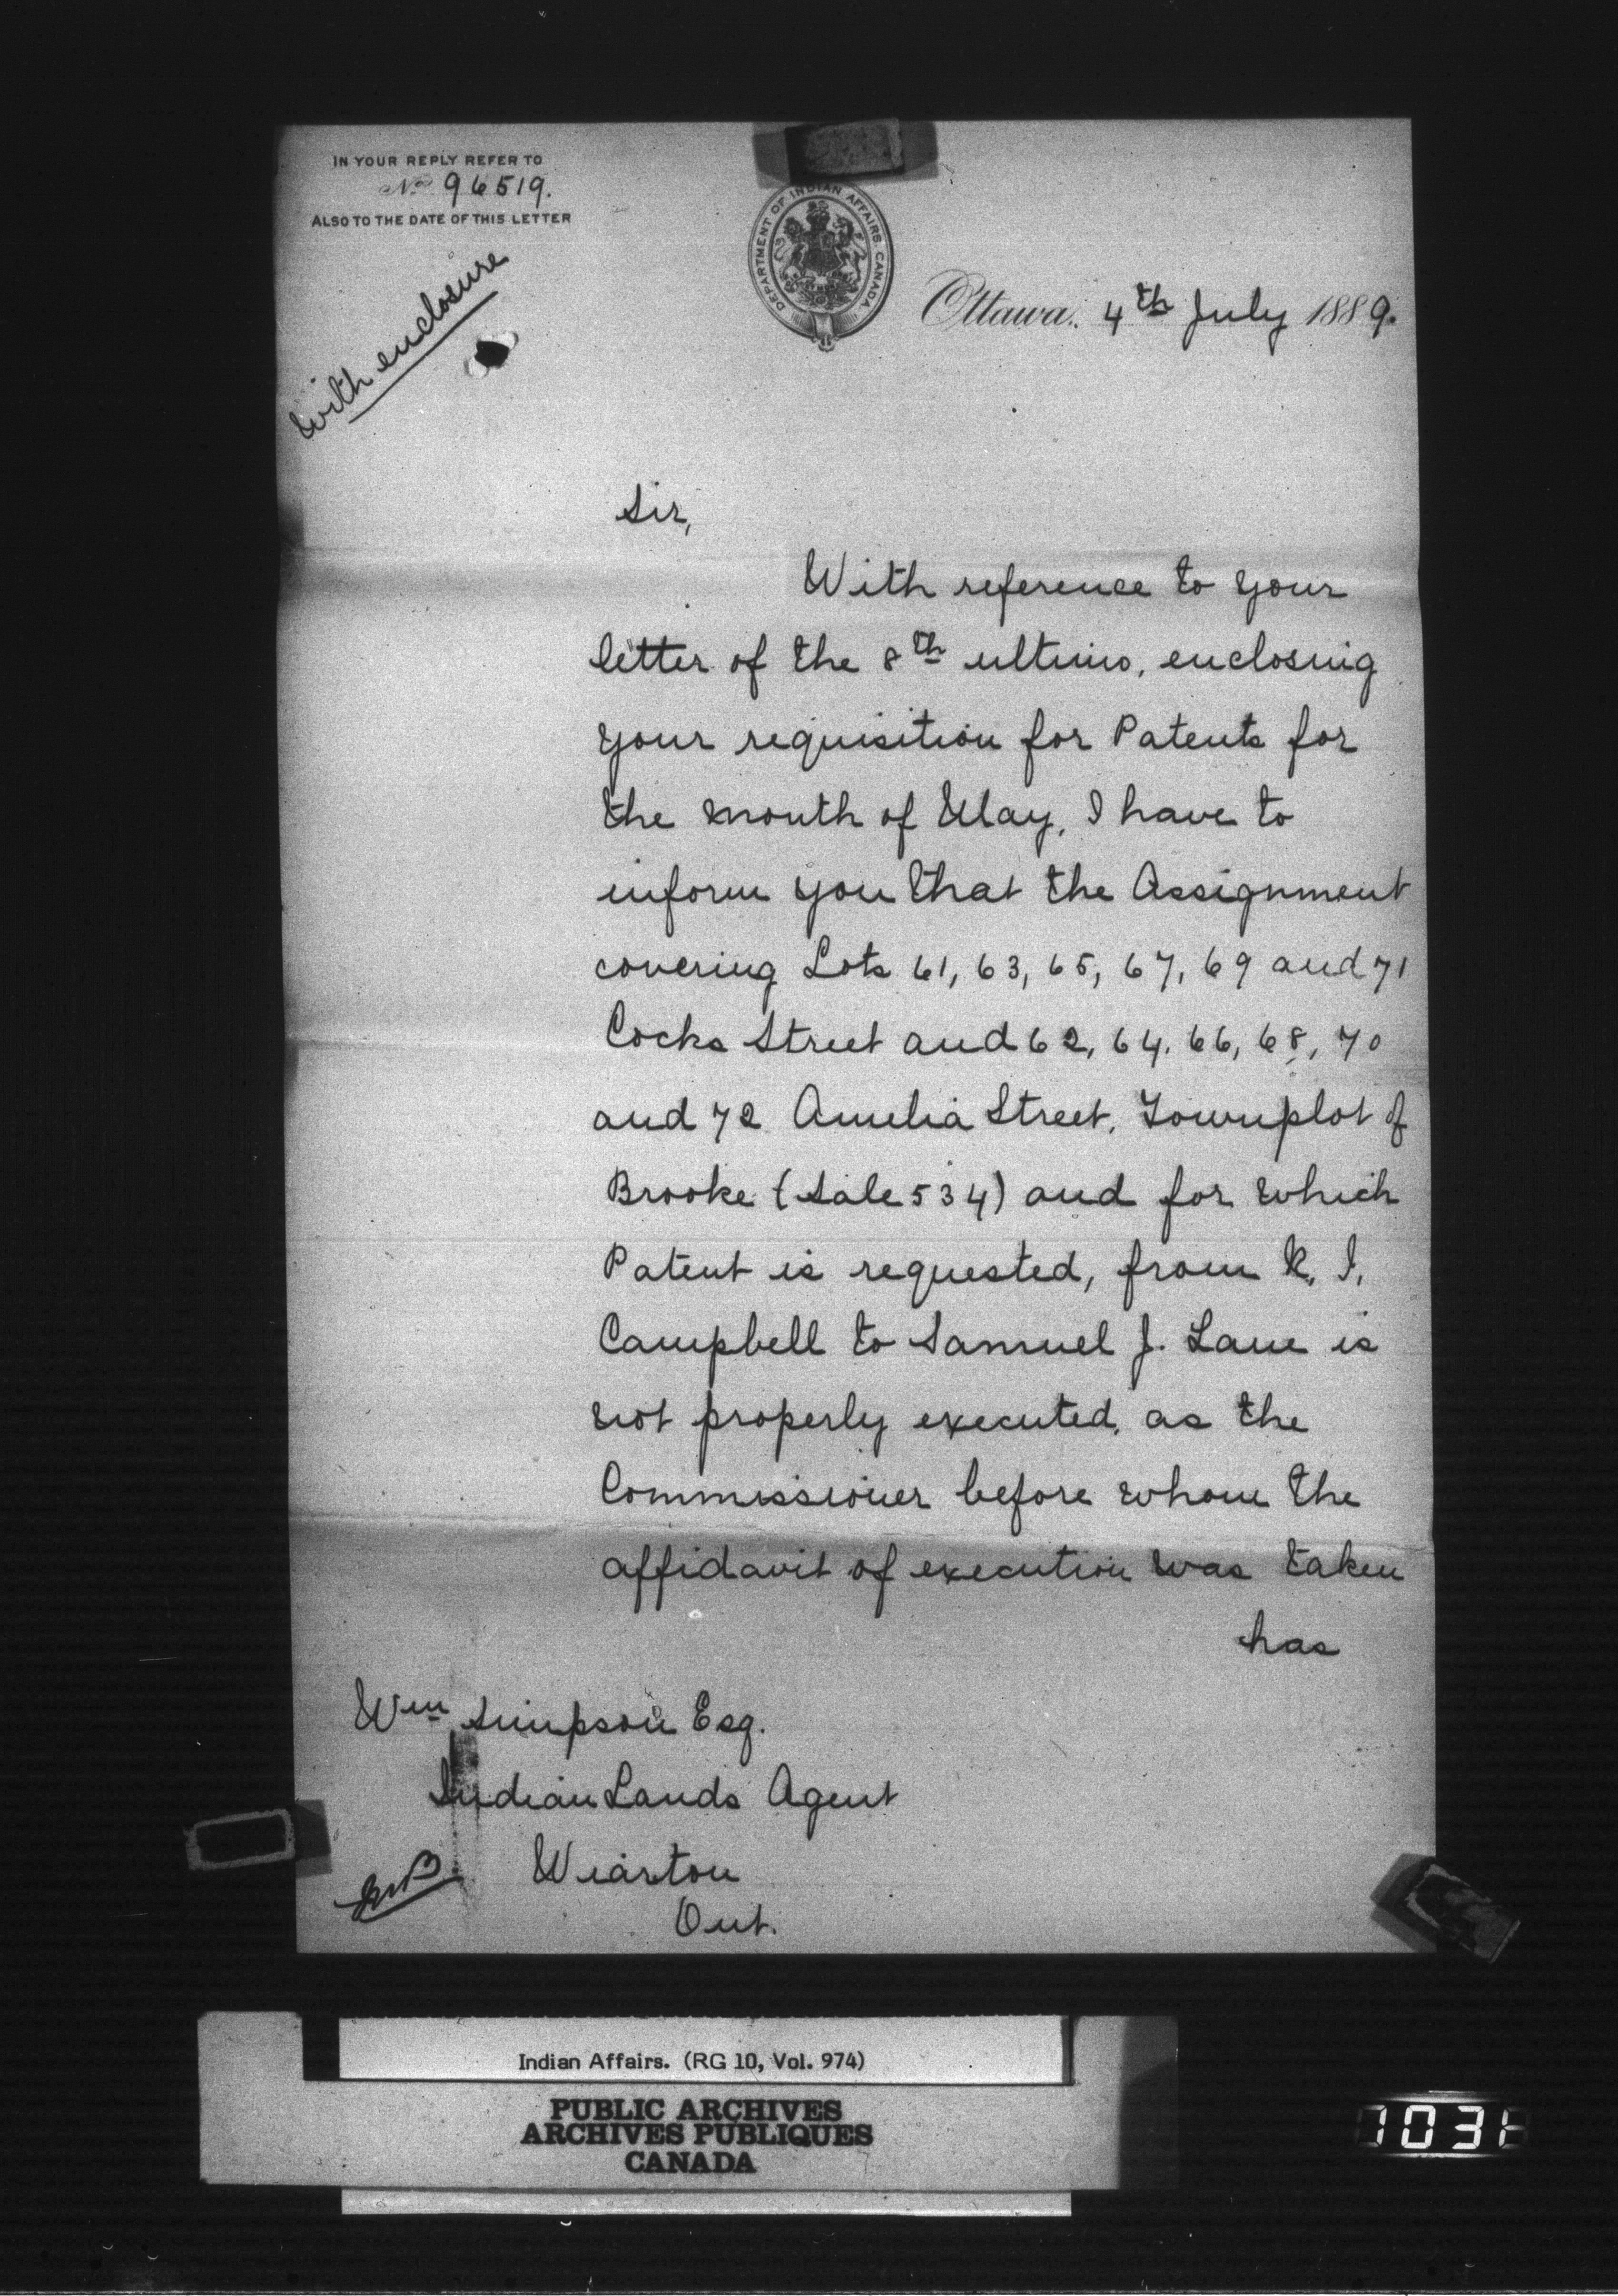 IN YOUR REPLY REFER TO
No 96519.
ALSO TO THE DATE OF THIS LETTER
With enclosure
DEPARTMENT OF INDIAN AFFAIRS. CANADA
Ottawa, 4th July 1889.
Sir,
With reference to your
letter of the 8th ultimo, enclosing
your requisition for Patents for
the month of May, I have to
inform you that the Assignment
covering Lots 61, 63, 65, 67, 69 and 71
Cocks Street and 62, 64, 66, 68, 70
and 72 Amelia Street, Townplot of
Brooke (Sale 534) and for which
Patent is requested, from K. I.
Campbell to Samuel J. Lane is
not properly executed, as the
Commissioner before whom the
affidavit of execution was taken
has
Wm Simpson Esq.
Indian Lands Agent
Wiarton
Ont.
Indian Affairs. (RG 10, Vol. 974)
PUBLIC ARCHIVES
ARCHIVES PUBLIQUES
CANADA
1031